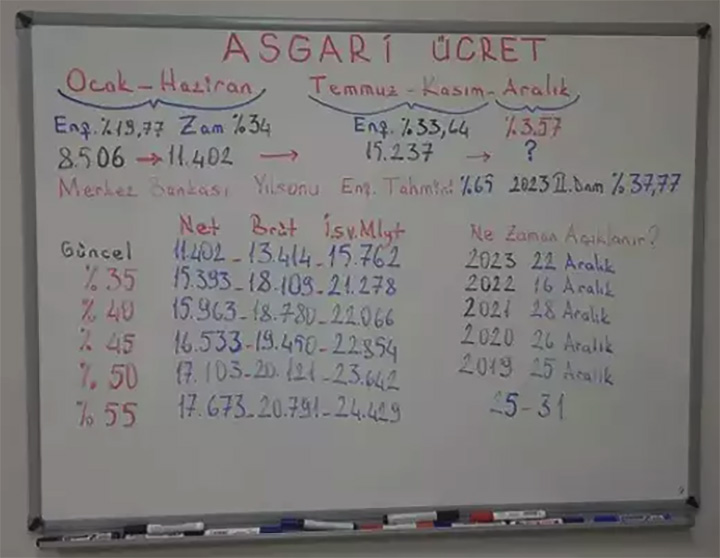 ASGARİ ÜCRET
Ocak-Haziran Temmuz-Kasım-Aralık
Enf.%19,77 Zam %34 Enf.%33,44 %3.57
8.506 → 11.402 → 15.237 → ?
Merkez Bankası Yılsonu Enf. Tahmini %65 2023 II.Dnm %37,77
Net Brüt İşv.Mlyt
Güncel 11.402 - 13.414 - 15.762
%35 15.393 - 18.109 - 21.278
%40 15.963 - 18.780 - 22.066
%45 16.533 - 19.450 - 22.854
%50 17.103 - 20.121 - 23.642
%55 17.673 - 20.791 - 24.429
Ne Zaman Açıklanır?
2023 22 Aralık
2022 16 Aralık
2021 28 Aralık
2020 26 Aralık
2019 25 Aralık
25-31